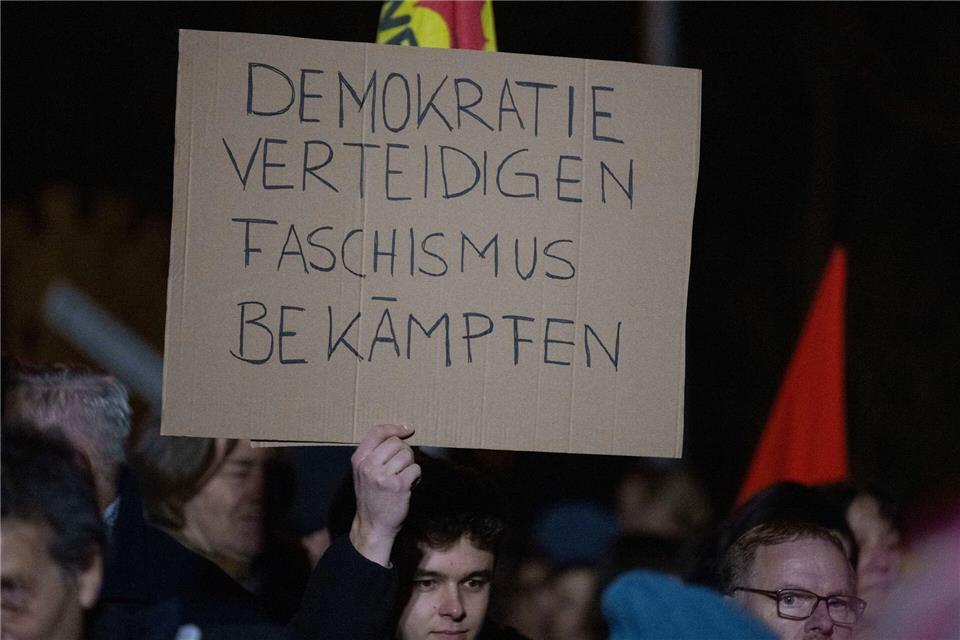 DEMOKRATIE
VERTEIDIGEN
FASCHISMUS
BEKÄMPFEN